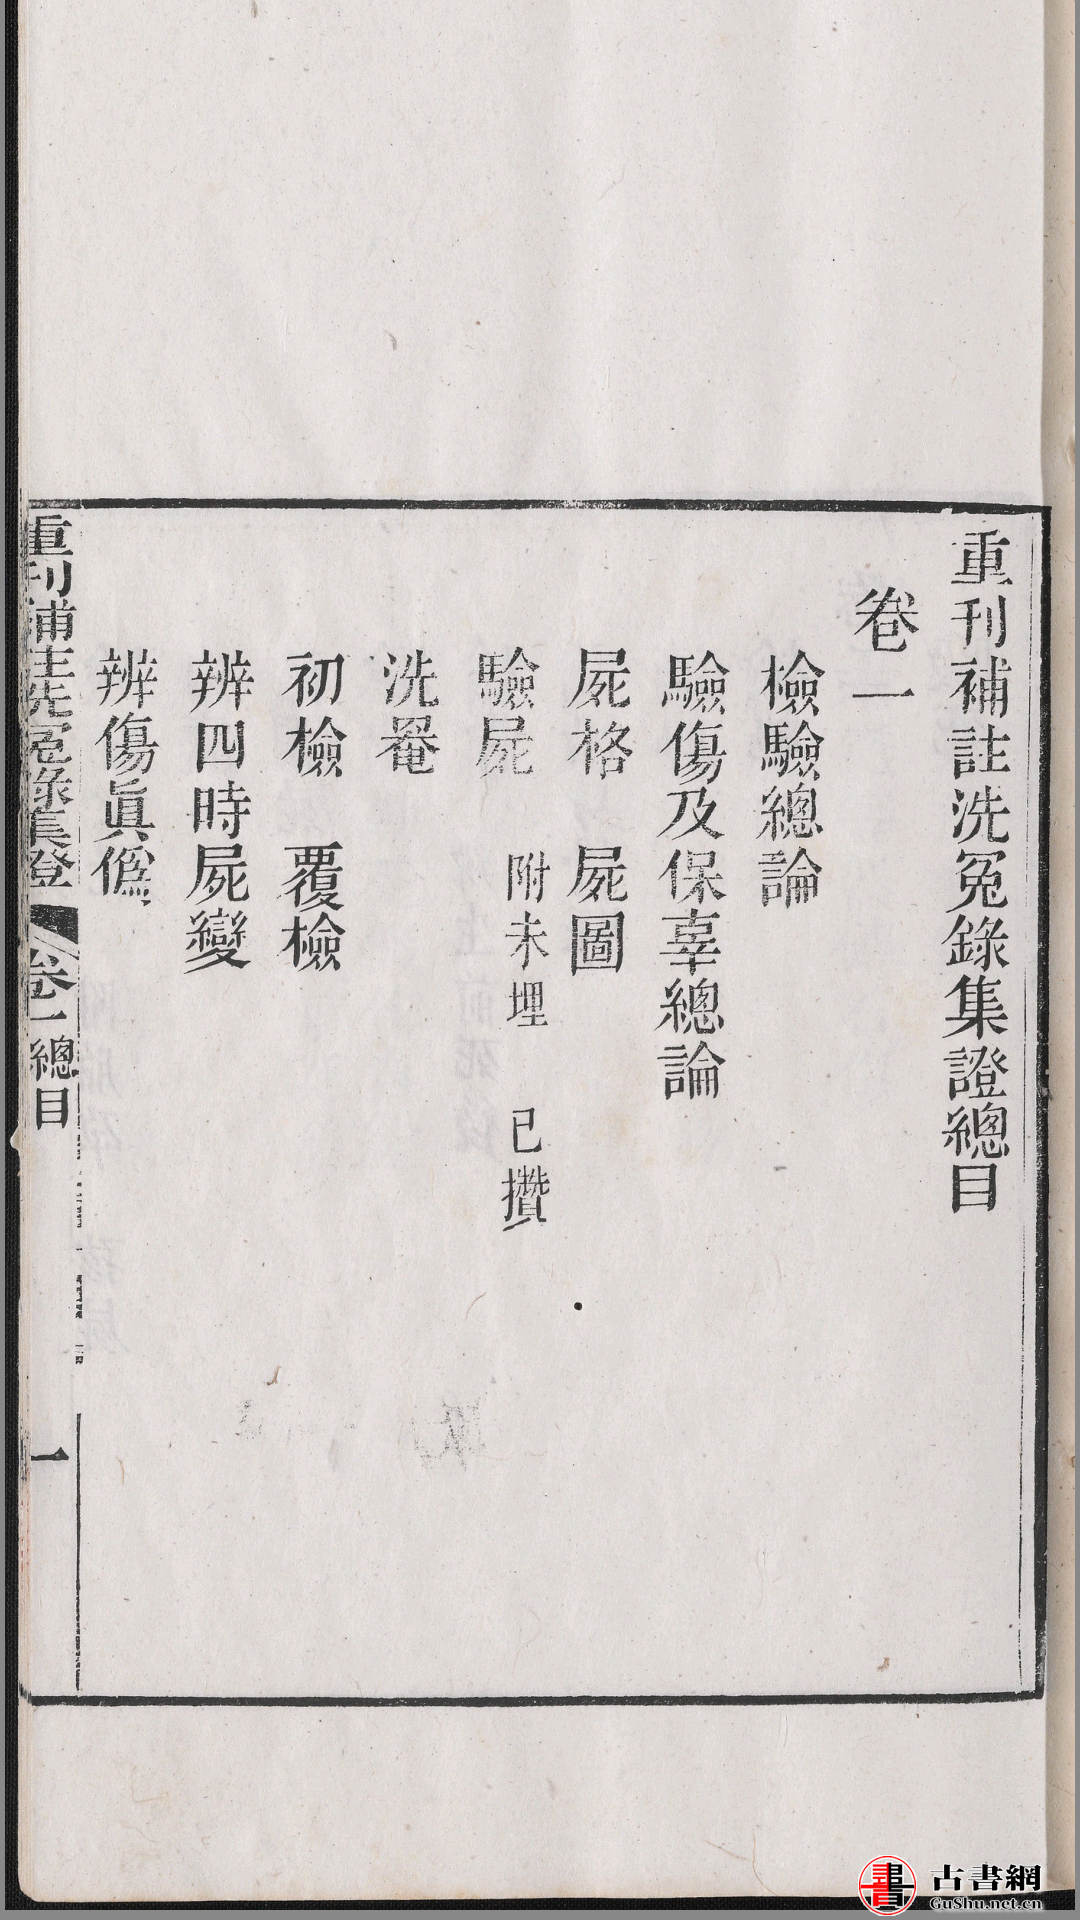 重刊補註洗冤錄集證總目
卷一
檢驗總論
驗傷及保辜總論
屍格　屍圖
驗屍　附未埋　已攢
洗罨
初檢　覆檢
辨四時屍變
辨傷眞僞
重刊補註洗冤錄集證　卷一總目　一
古書網
GuShu.net.cn